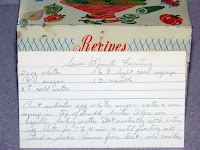 Recipes
Seven Minute Frosting
2 egg whites 1 t light corn syrup
sugar 1 t vanilla
5 T cold water
Put unbeaten egg whites, sugar, water &
syrup in top of double boiler. Place over
rapidly boiling water. Beat with rotary
egg beater for 7 minutes until frosting will
stand in peaks. Remove from heat; add vanilla